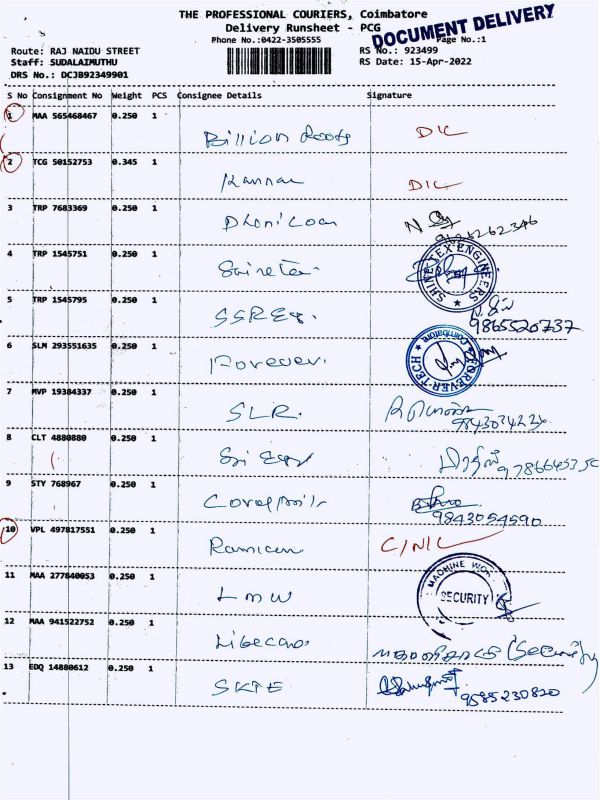 THE PROFESSIONAL COURIERS, Coimbatore
Delivery Runsheet - PCG
DOCUMENT DELIVERY
Phone No.:0422-3505555
Page No.:1
Route: RAJ NAIDU STREET
RS No.: 923499
Staff: SUDALAIMUTHU
RS Date: 15-Apr-2022
DRS No.: DCJB92349901
S No Consignment No Weight PCS Consignee Details Signature
1 MAA 565468467 0.250 1
Billion Roots D/C
2 TCG 50152753 0.345 1
Kannan D/C
3 TRP 7683369 0.250 1
Dhoni Loan
4 TRP 1545751 0.250 1
SHINE TEX ENGINEERS
5 TRP 1545795 0.250 1
9865520737
6 SLM 293551635 0.250 1
Forever. FOREVER TECH Coimbatore
7 MVP 19384337 0.250 1
SLR.
8 CLT 4880880 0.250 1
Sri
9 STY 768967 0.250 1
9843054590
10 VPL 497817551 0.250 1
C/NIC
11 MAA 277840053 0.250 1
LMW MACHINE WOR SECURITY
12 MAA 941522752 0.250 1
(Security)
13 EDQ 14880612 0.250 1
SKTE 9585230820